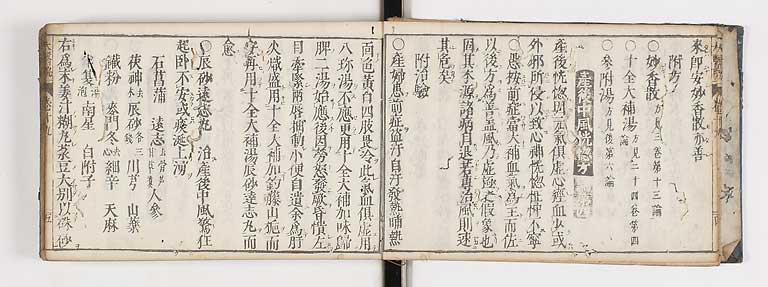 來即安妙香散亦善
附方
○妙香散方見三卷第十三論
○十全大補湯方見二十四卷第四
○參附湯方見後第六論
產後中風恍惚方
產後恍惚因元氣俱虛心經血少或
外邪所侵以致心神恍惚怔忡不寧
○愚按前症當大補血氣為主而佐
以後方為善蓋風乃虛極之假象也
固其本源諸病自退若專治風則速
其危矣
附治驗
○產婦患前症盜汗自汗發熱晡熱
面色黃白四肢畏冷此氣血俱虛用
八珍湯不應更用十全大補加味歸
脾二湯始應後因勞怒發厥昏憒左
目牽緊兩唇抽動小便自遺余為肝
火熾盛用十全大補加鈎藤山梔而
安再用十全大補湯辰砂遠志丸而
愈
○辰砂遠志丸 治產後中風驚狂
起臥不安或痰涎上湧
石菖蒲 遠志 人參
茯神去木 辰砂各三 川芎 山藥
鐵粉 麥門冬去心 細辛 天麻
南星 白附子
右為末姜汁糊丸菉豆大別以朱砂